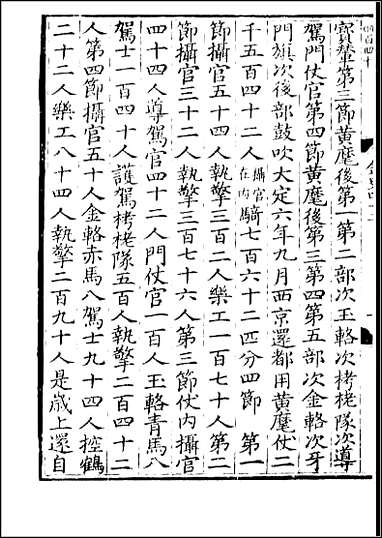 寳輦第三節黄麾後第一第二部次玉輅次栲栳隊次導
駕門仗官第四節黄麾後第三第四第五部次金輅次牙
門旗次後部鼓吹大定六年九月西京還都用黄麾仗二
千五百四十二人攝官在内騎七百六十二匹分四節　第一
節攝官五十四人執擎三百二人樂工一百七十人第二
節攝官三十二人執擎三百七十六人第三節仗内攝官
四十四人導駕官四十二人門仗官一百人玉輅青馬八
駕士一百四十人護駕栲栳隊五百人執擎二百四十二
人第四節攝官五十人金輅赤馬八駕士九十四人控鶴
二十二人樂工八十四人執擎二百九十人是歲上還自